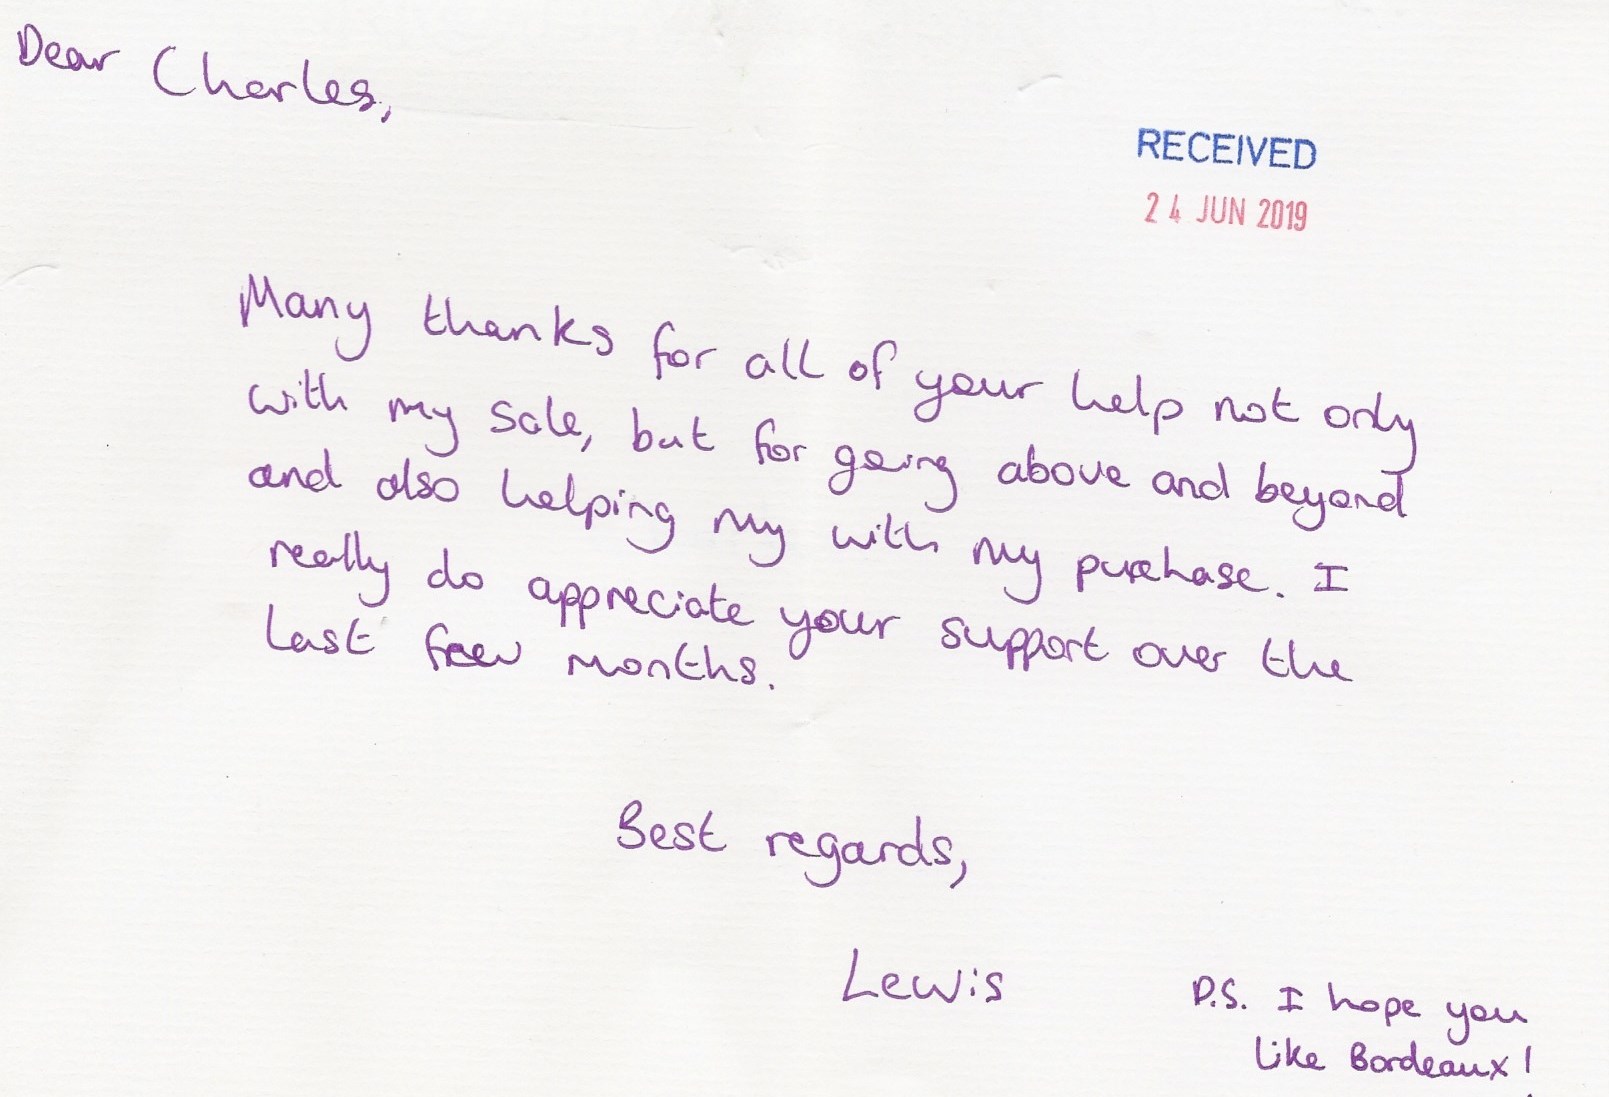 Dear Charles,
RECEIVED
24 JUN 2019
Many thanks for all of your help not only
with my sale, but for going above and beyond
and also helping my with my purchase. I
really do appreciate your support over the
last few months.
Best regards,
Lewis
P.S. I hope you
like Bordeaux!